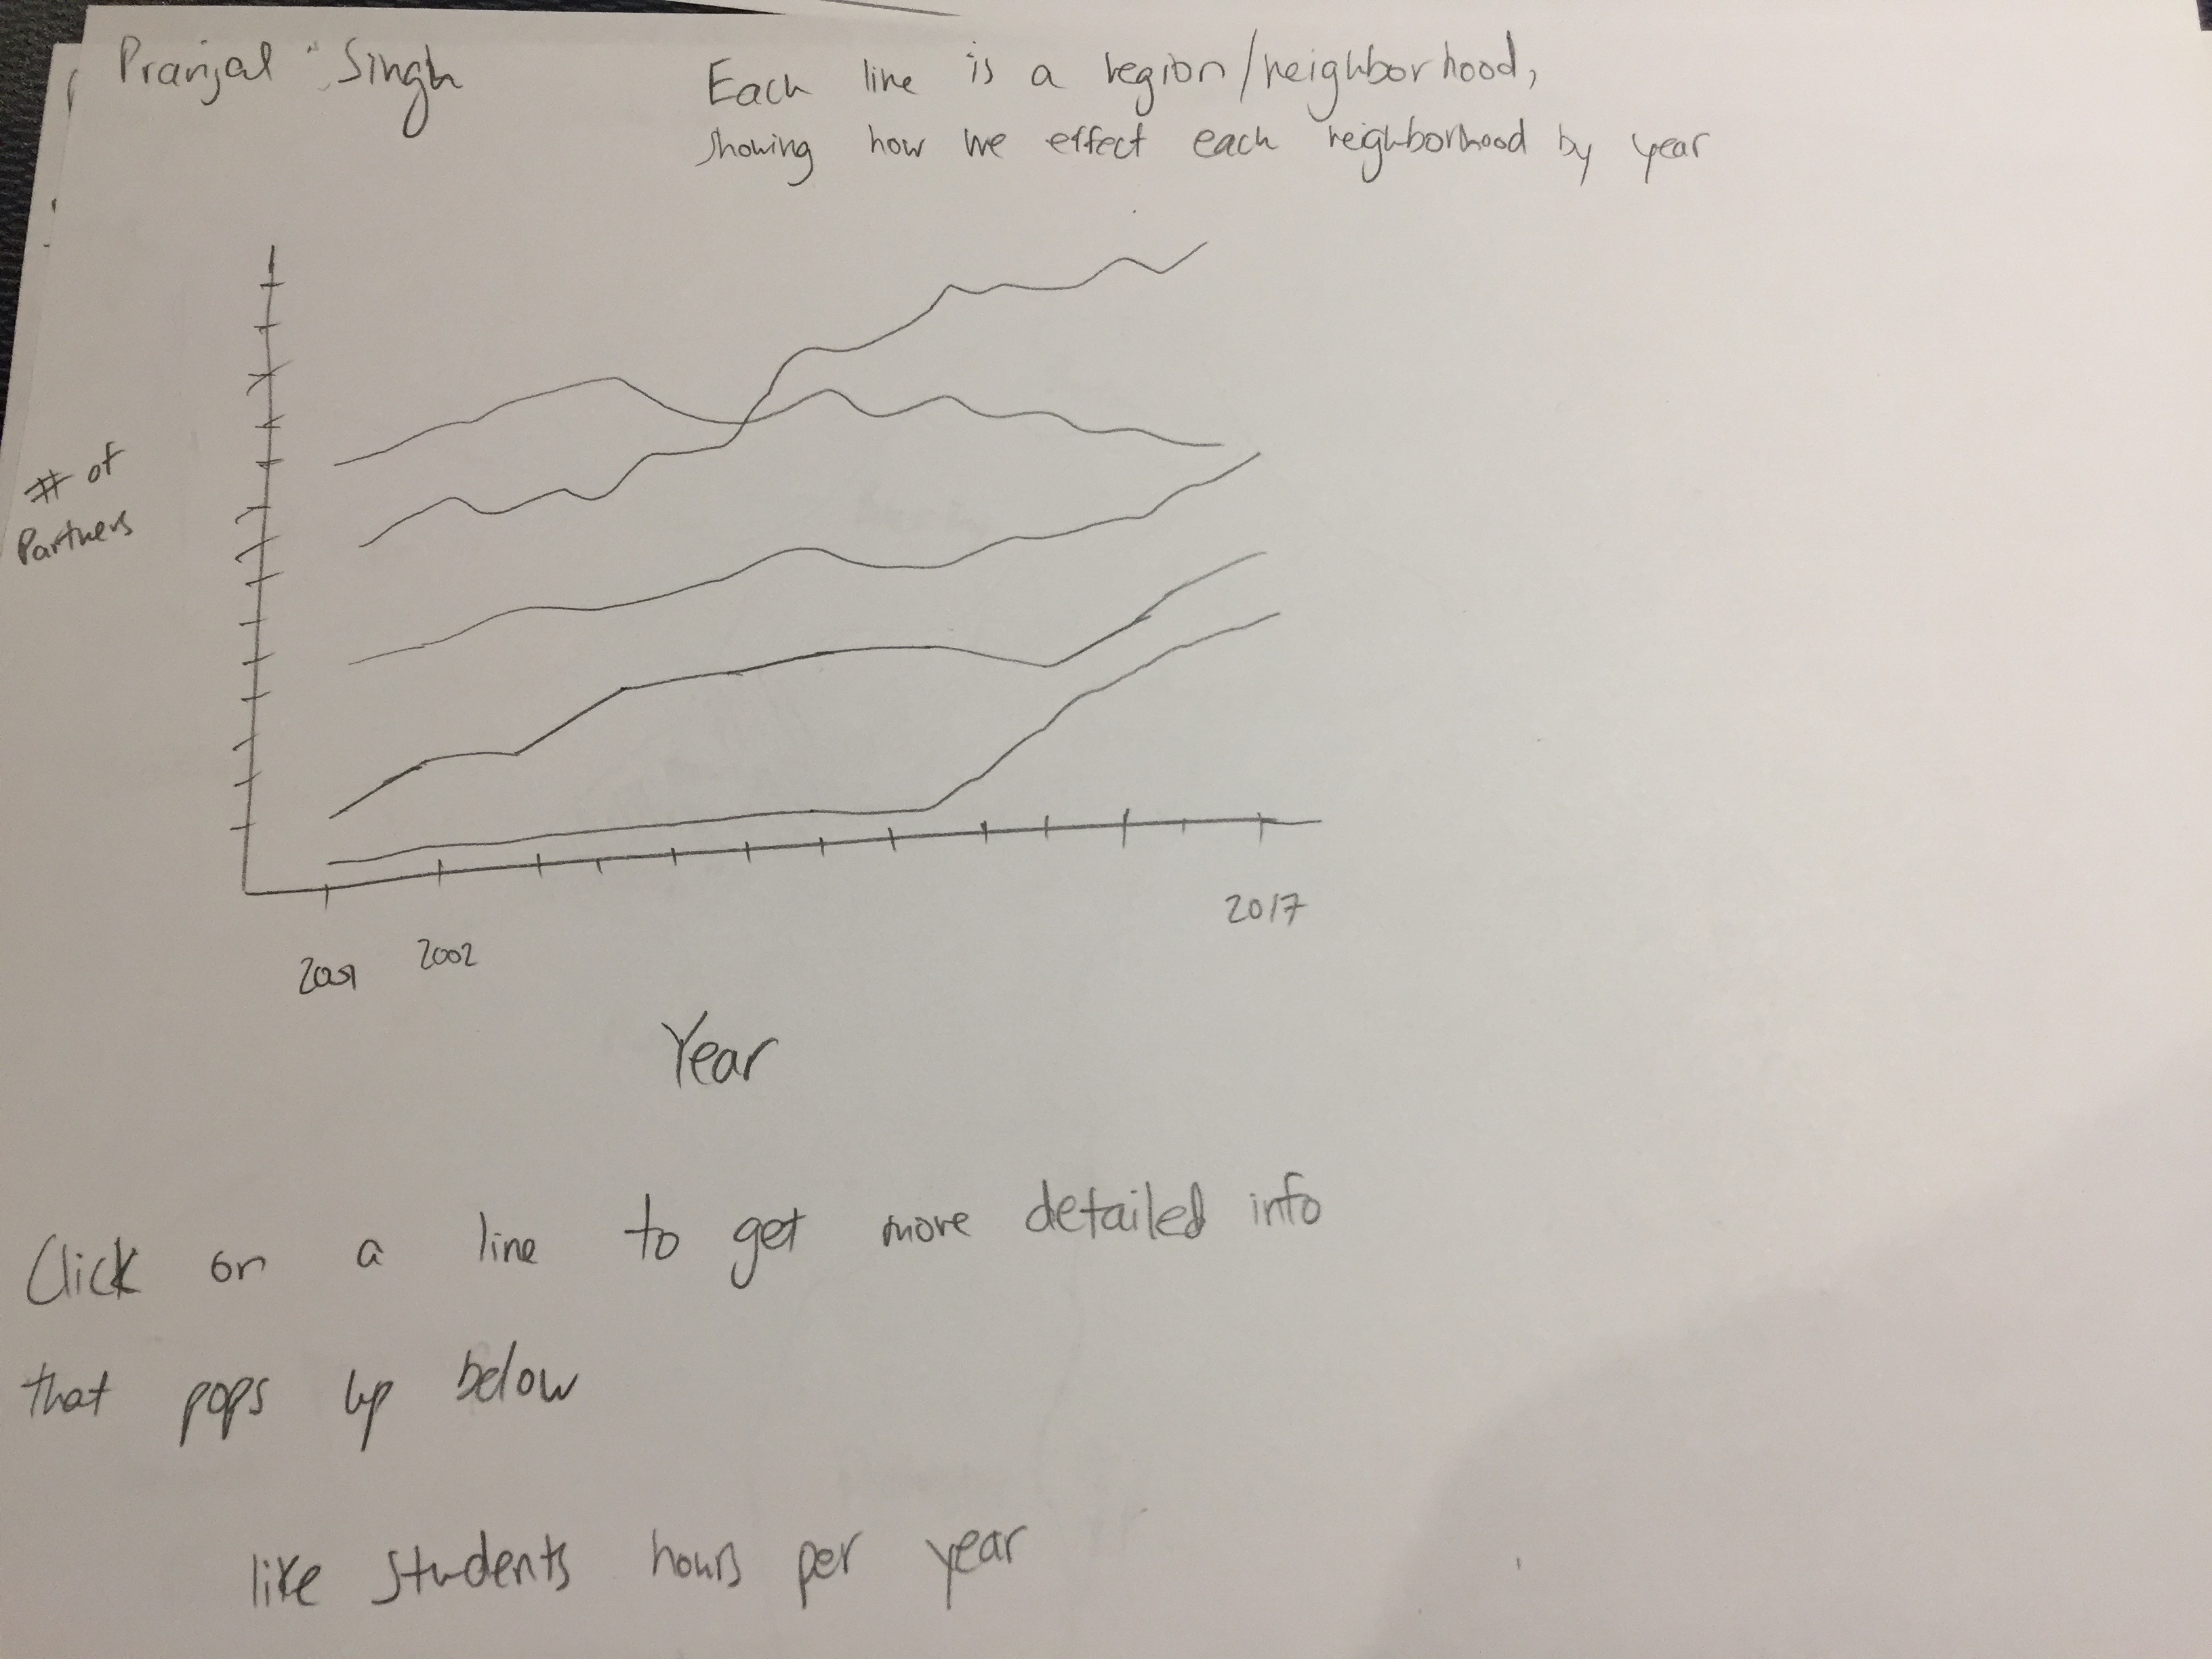 Pranjal Singh
Each line is a region/neighborhood,
showing how we effect each neighborhood by year
# of
Partners
2001 2002 2017
Year
Click on a line to get more detailed info
that pops up below
like students hours per year